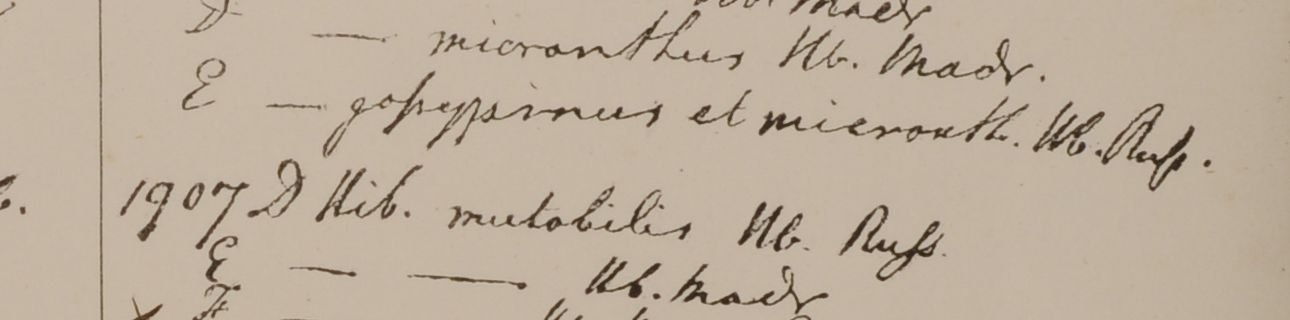 Madr
D — micranthus Hb. Madr.
E — gossypinus et micranth. Hb. Russ.
1907 D Hib. mutabilis Hb. Russ.
E — — Hb. Madr
F —